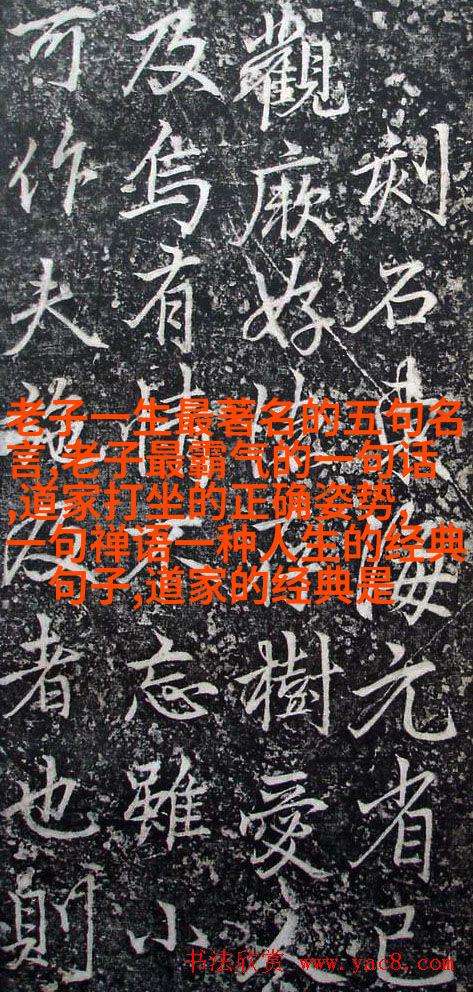 刻石元省己
觀厥好樹愛
及焉有情不忘雖小
可作夫施及者也則
老子一生最著名的五句名
言,老子最霸气的一句话
,道家打坐的正确姿势,
一句禅语一种人生的经典
句子,道家的经典是
书法欣赏 www.yac8.com